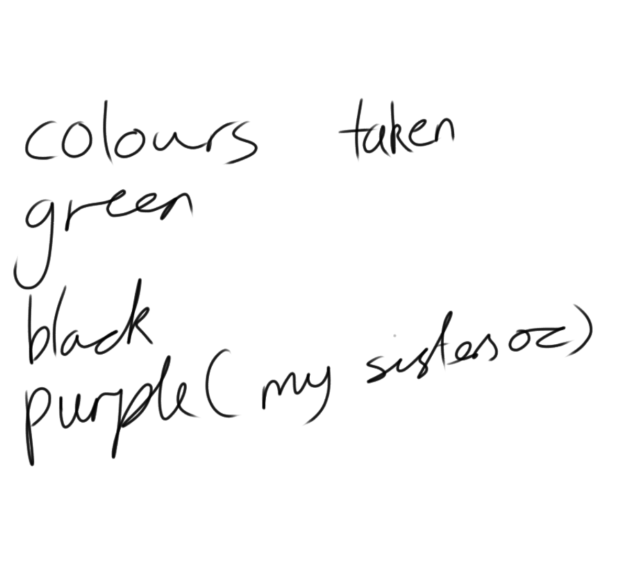 colours taken
green
black
purple (my sisters oc)